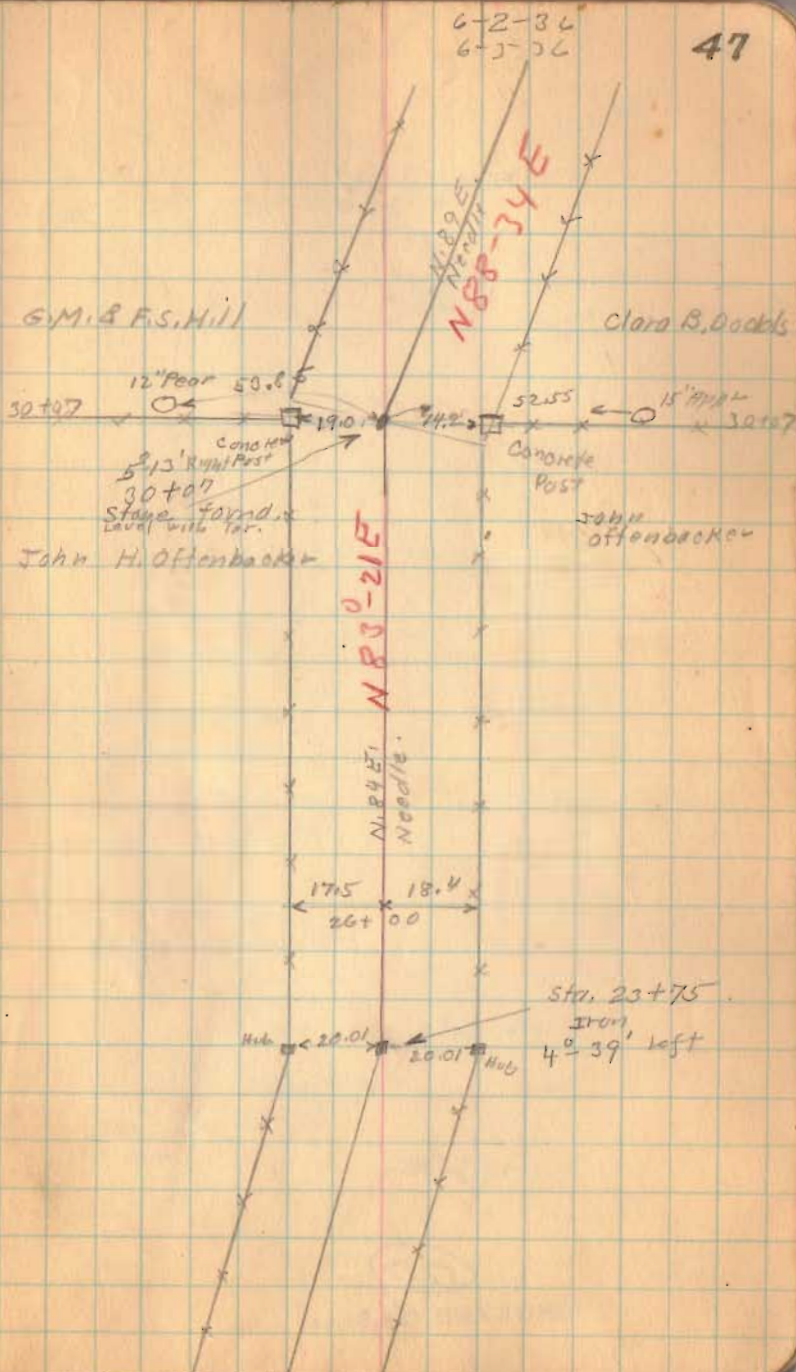 6-2-36
6-3-36
47
N.89E.
Needle
N88-34E
G.M.& F.S. Hill
Clara B, Dodds
12" Pear 50.8
52.55
15"
30+07
19.0
14.2
30+07
Concrete
Post
Concrete
Post
5°13' Right
30+07
Stone found.
Level with Tar.
John
Offenbacker
John H. Offenbacker
N83°-21E
N.84E.
Needle.
17.5
18.4
26+00
Sta. 23+75
Iron
4°-39' Left
Hub
20.01
20.01
Hub